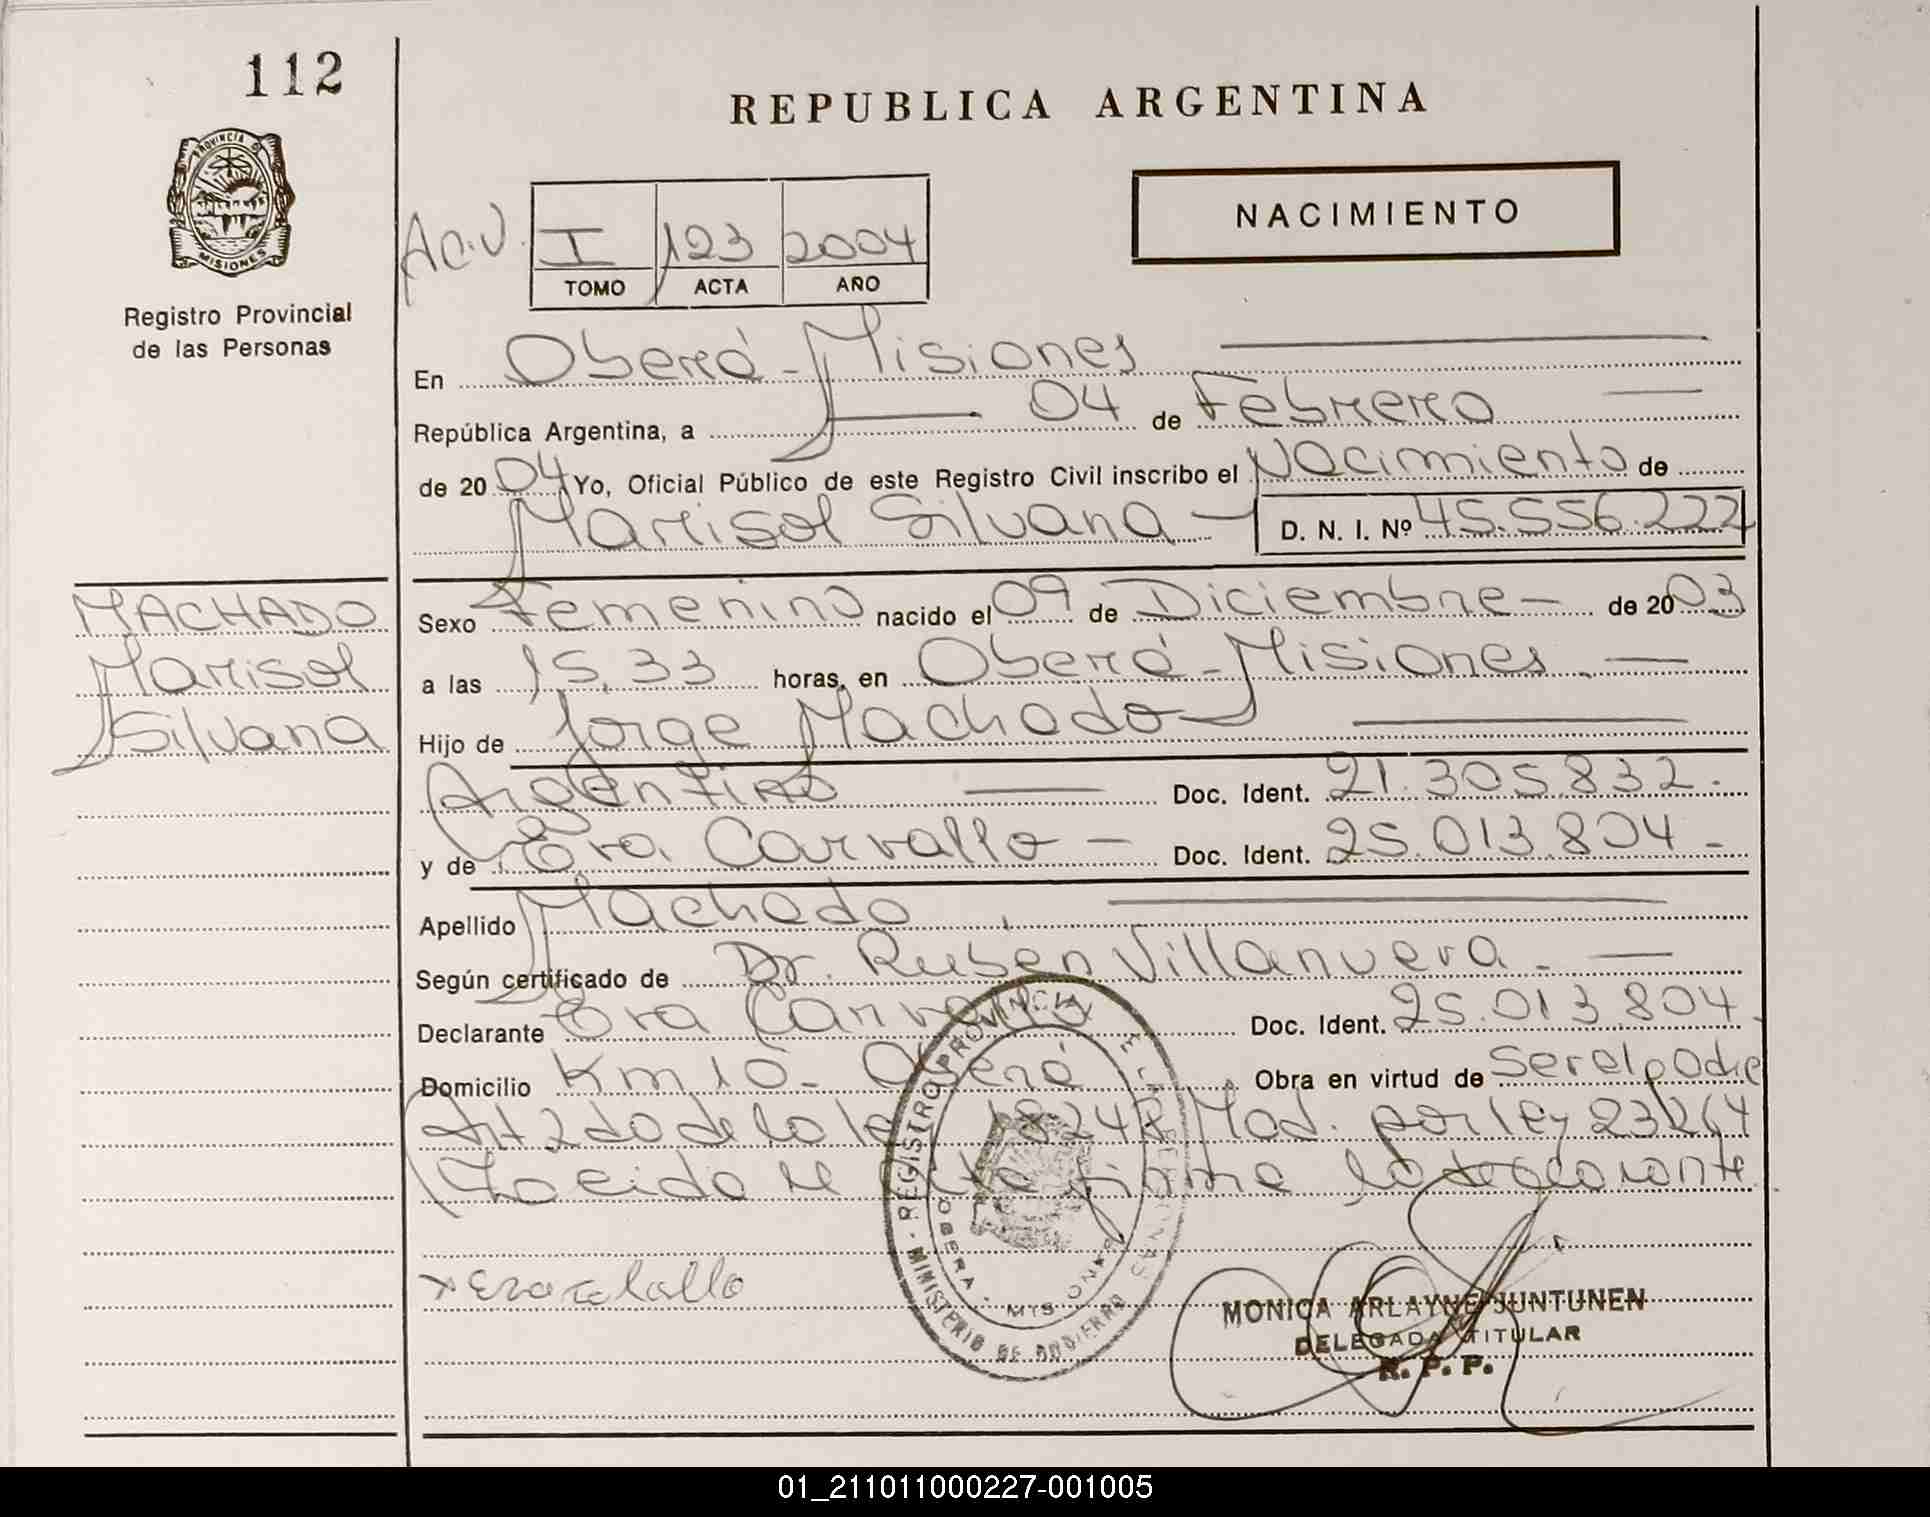 112
REPUBLICA ARGENTINA
PROVINCIA DE
MISIONES
Registro Provincial
de las Personas
NACIMIENTO
Ac.V. I 123 2004
TOMO ACTA AÑO
En Oberá - Misiones
República Argentina, a 04 de Febrero
de 2004 Yo, Oficial Público de este Registro Civil inscribo el Nacimiento de
Marisol Silvana D. N. I. Nº 45.556.222
MACHADO
Marisol
Silvana
Sexo Femenino nacido el 09 de Diciembre de 2003
a las 15.33 horas, en Oberá - Misiones.
Hijo de Jorge Machado
Argentino Doc. Ident. 21.305.832.
y de Eva Carvallo Doc. Ident. 25.013.804
Apellido Machado
Según certificado de Dr. Ruben Villanueva.
Declarante Eva Carvallo Doc. Ident. 25.013.804
Domicilio Km 10 - Oberá Obra en virtud de Ser el padre
Art 2do de la ley 18248 Mod. por ley 23264
el Acta firma la declarante
x Eva
REGISTRO PROVINCIAL DE LAS PERSONAS
MINISTERIO DE GOBIERNO
OBERA - MTS
MONICA ARLAYNE JUNTUNEN
DELEGADA TITULAR
R. P. P.
01_211011000227-001005